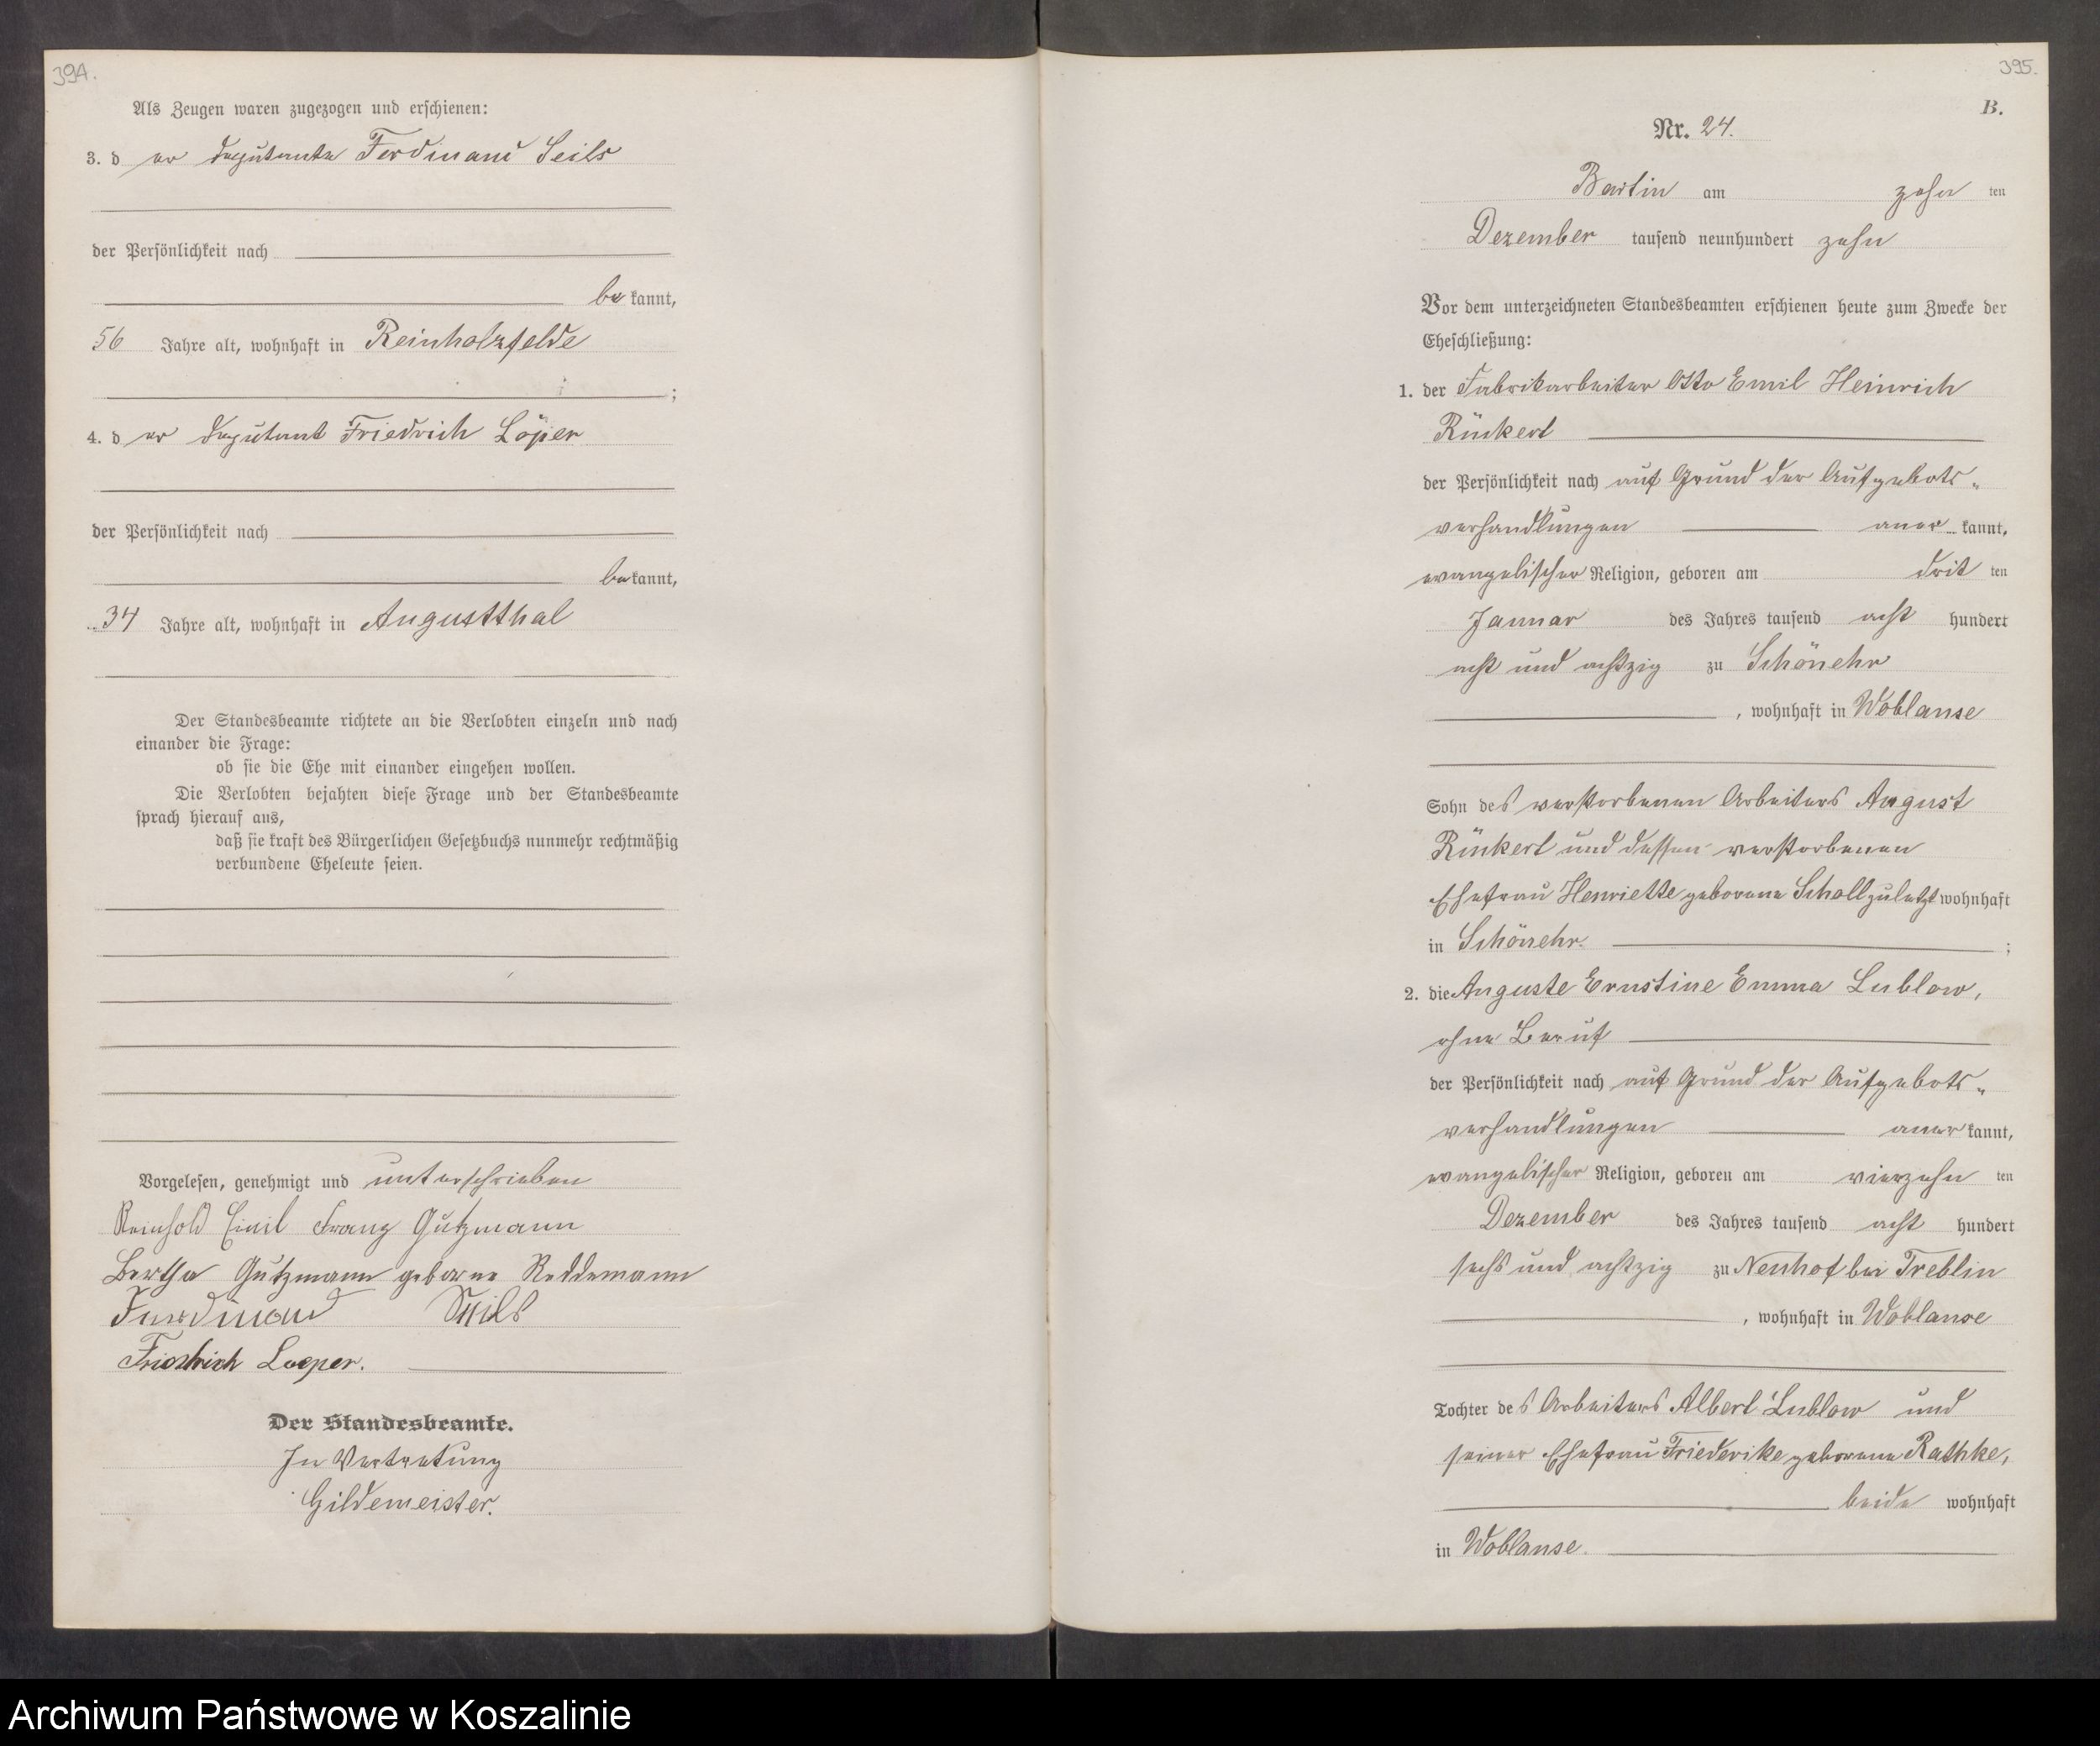 394.
Als Zeugen waren zugezogen und erschienen:
3. d er Deputant Ferdinand Seils
der Persönlichkeit nach
be kannt,
56 Jahre alt, wohnhaft in Reinholzfelde
;
4. d er Deputant Friedrich Löper
der Persönlichkeit nach
be kannt,
34 Jahre alt, wohnhaft in Augustthal
Der Standesbeamte richtete an die Verlobten einzeln und nach
einander die Frage:
ob sie die Ehe mit einander eingehen wollen.
Die Verlobten bejahten diese Frage und der Standesbeamte
sprach hierauf aus,
daß sie kraft des Bürgerlichen Gesetzbuchs nunmehr rechtmäßig
verbundene Eheleute seien.
Vorgelesen, genehmigt und unterschrieben
Reinhold Emil Franz Gutzmann
Bertha Gutzmann geborne Reddemann
Ferdinand Seils
Friedrich Loeper.
Der Standesbeamte.
In Vertretung
Gildemeister.
395.
B.
Nr. 24.
Bartin am zehn ten
Dezember tausend neunhundert zehn
Vor dem unterzeichneten Standesbeamten erschienen heute zum Zwecke der
Eheschließung:
1. der Fabrikarbeiter Otto Emil Heinrich
Rünkert
der Persönlichkeit nach auf Grund der Aufgebots-
verhandlungen aner kannt,
evangelischer Religion, geboren am drit ten
Januar des Jahres tausend acht hundert
acht und achtzig zu Schönehr
, wohnhaft in Woblanse
Sohn des verstorbenen Arbeiters August
Rünkert und dessen verstorbenen
Ehefrau Henriette geborene Scholl zuletzt wohnhaft
in Schönehr. ;
2. die Auguste Ernstine Emma Lublow,
ohne Beruf
der Persönlichkeit nach auf Grund der Aufgebots-
verhandlungen aner kannt,
evangelischer Religion, geboren am vierzehn ten
Dezember des Jahres tausend acht hundert
sechs und achtzig zu Neuhof bei Treblin
, wohnhaft in Woblanse
Tochter des Arbeiters Albert Lublow und
seiner Ehefrau Friederike geborene Rathke,
beide wohnhaft
in Woblanse.
Archiwum Państwowe w Koszalinie